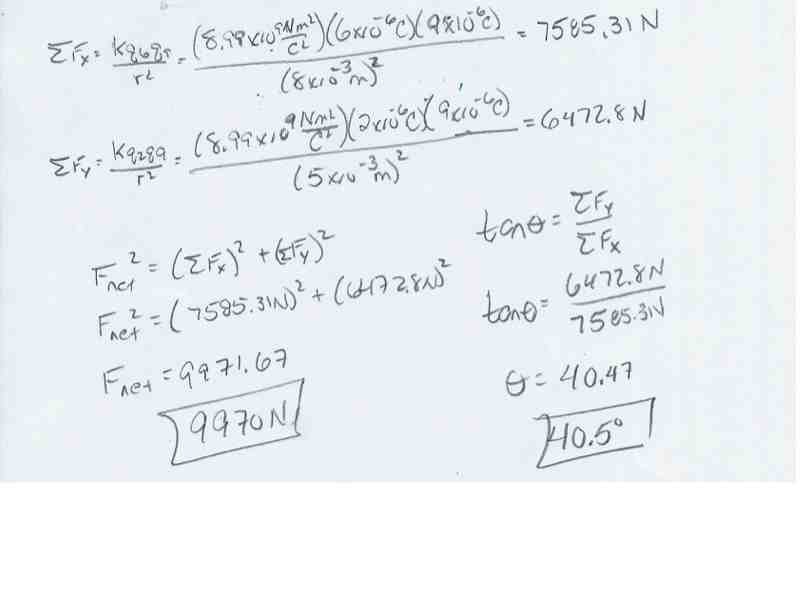 ΣFx = kq6q9/r² = (8.99x10⁹ Nm²/C²)(6x10⁻⁶C)(9x10⁻⁶C)/(8x10⁻³m)² = 7585.31 N
ΣFy = kq2q9/r² = (8.99x10⁹ Nm²/C²)(2x10⁻⁶C)(9x10⁻⁶C)/(5x10⁻³m)² = 6472.8 N
Fnet² = (ΣFx)² + (ΣFy)²
Fnet² = (7585.31N)² + (6472.8N)²
Fnet = 9971.67
9970N
tanθ = ΣFy/ΣFx
tanθ = 6472.8N/7585.31N
θ = 40.47
40.5°